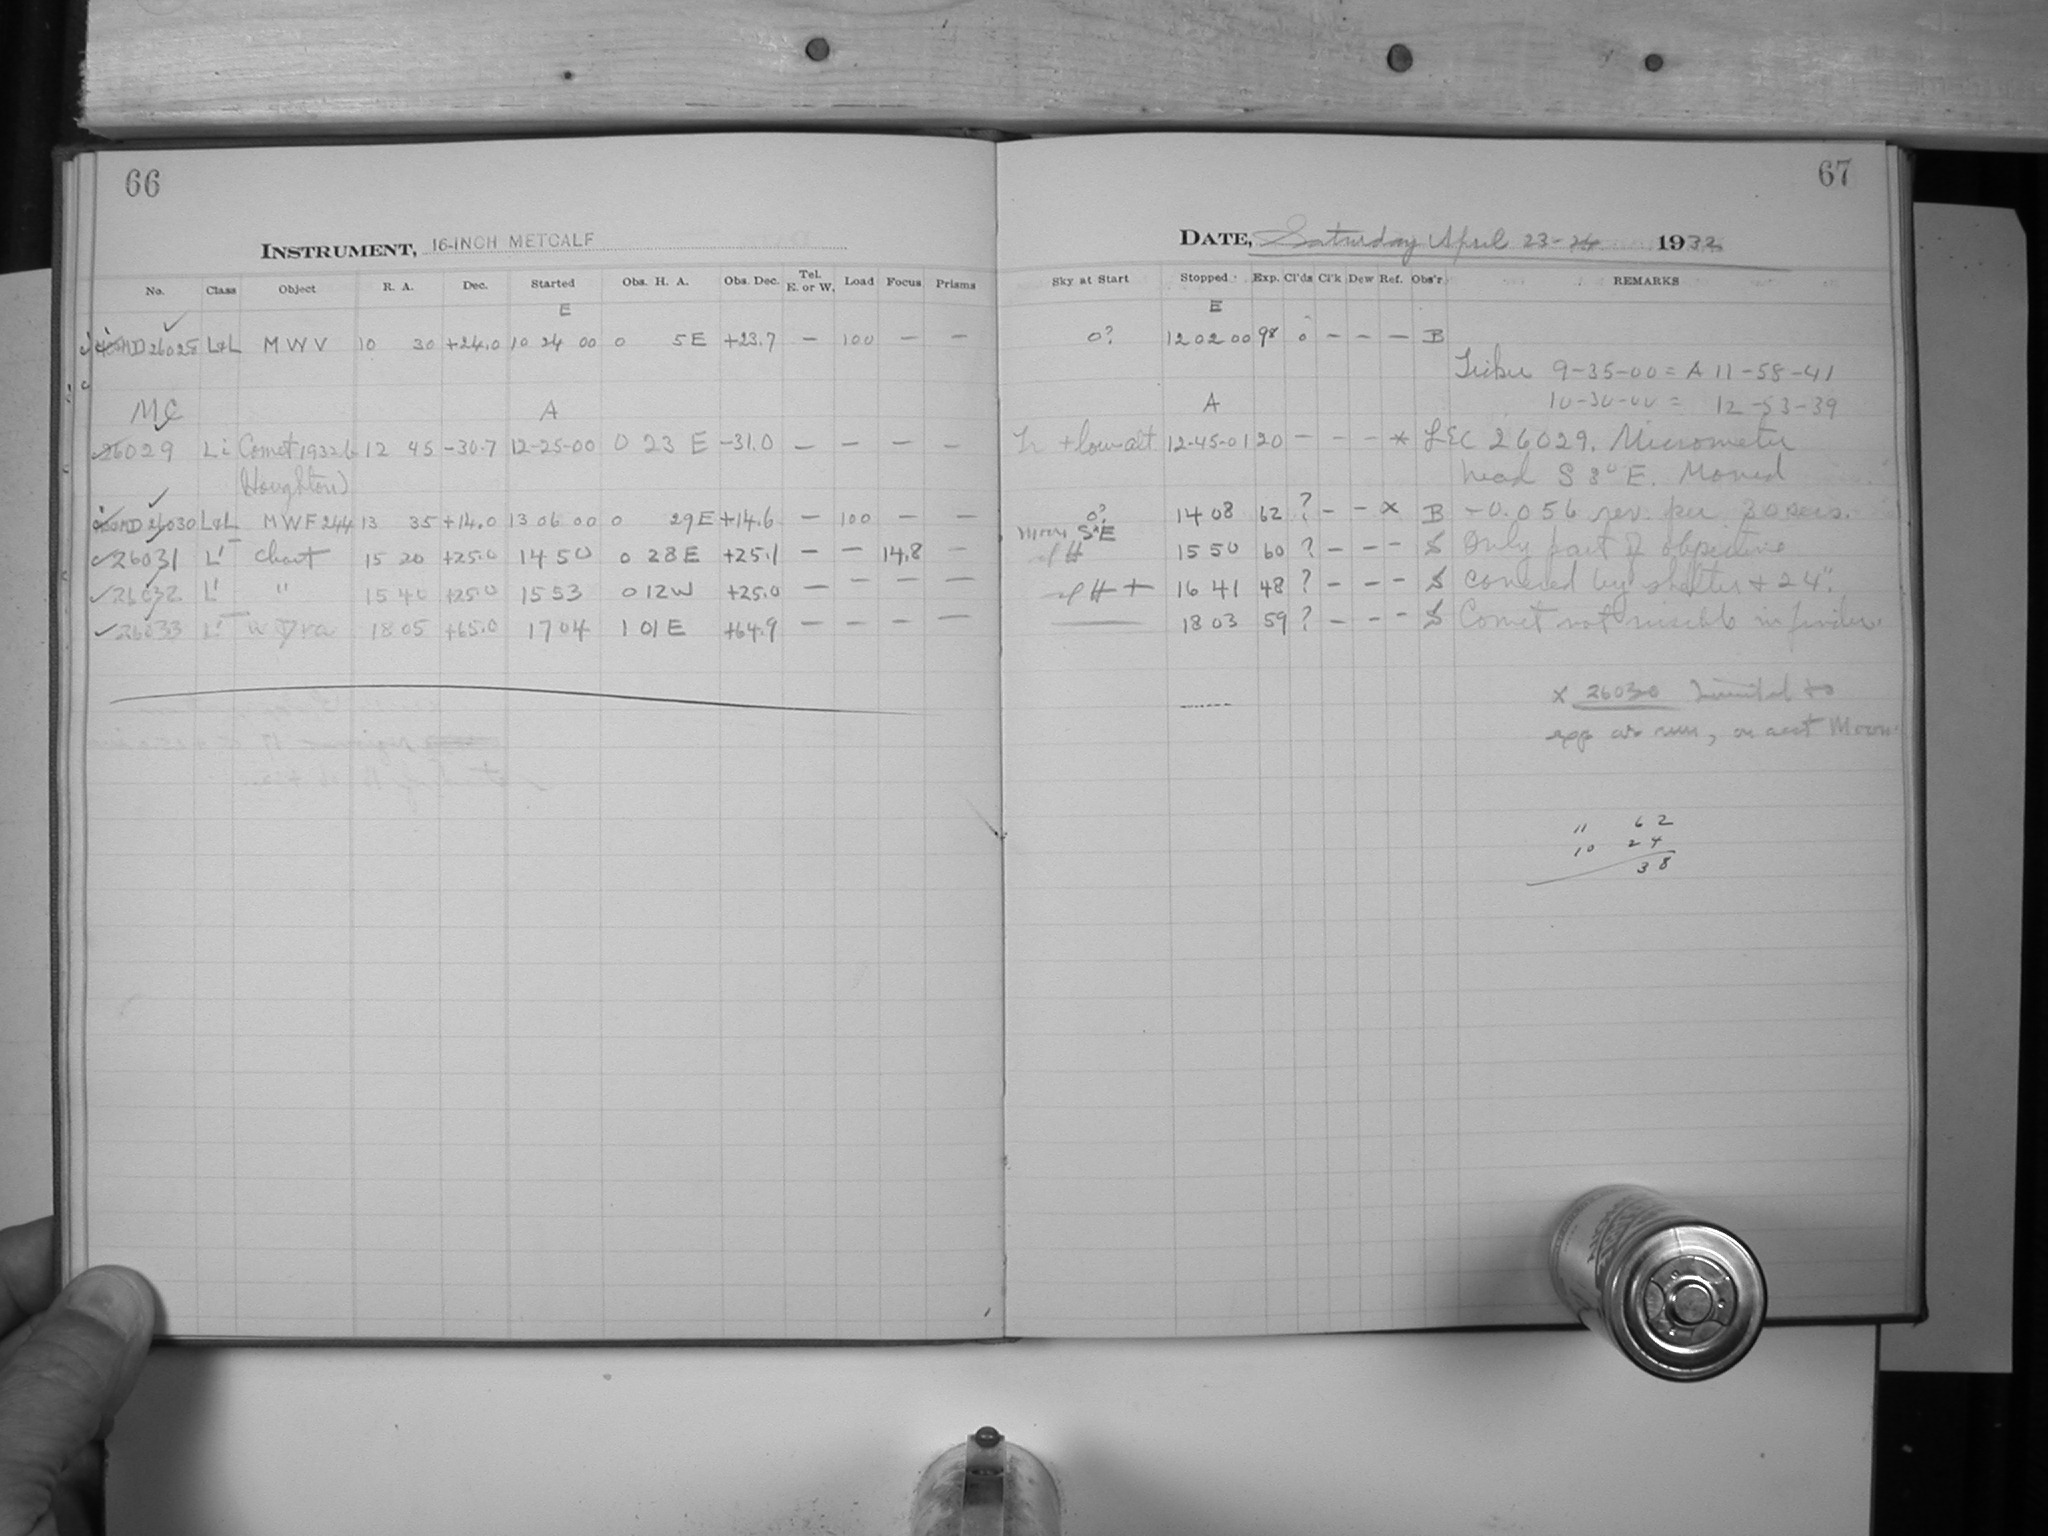 66
INSTRUMENT, 16-INCH METCALF
No. Class Object R. A. Dec. Started Obs. H. A. Obs. Dec. Tel. E. or W. Load Focus Prisms
E
26028 L&L MWV 10 30 +24.0 10 24 00 0 5E +23.7 — 100 — —
MC A
26029 Li Comet 1932b 12 45 -30.7 12-25-00 0 23 E -31.0 — — — —
Houghton)
26030 L&L MWF 244 13 35 +14.0 13 06 00 0 29E +14.6 — 100 — —
26031 L' Chart 15 20 +25.0 14 50 0 28E +25.1 — — 14.8 —
26032 L' " 15 40 +25.0 15 53 0 12W +25.0 — — — —
26033 L' Dra 18 05 +65.0 17 04 1 01E +64.9 — — — —
67
DATE, Saturday April 23-24 1932
Sky at Start Stopped Exp. Cl'ds Cl'k Dew Ref. Obs'r REMARKS
E
0? 12 02 00 98 0 — — — B
9-35-00 = A 11-58-41
A 10-30-00 = 12-53-39
+ low alt 12-45-01 20 — — — * LEC 26029. Micrometer
head S 8° E. Moved
0? 14 08 62 ? — — x B -0.056 rev. per 30 secs.
Moon S*E 15 50 60 ? — — — S Only part of objective
16 41 48 ? — — — S covered by shelter + 24".
18 03 59 ? — — — S Comet not visible in finder.
x 26030 Limited to
exp as run, on acct Moon
11 62
10 24
38